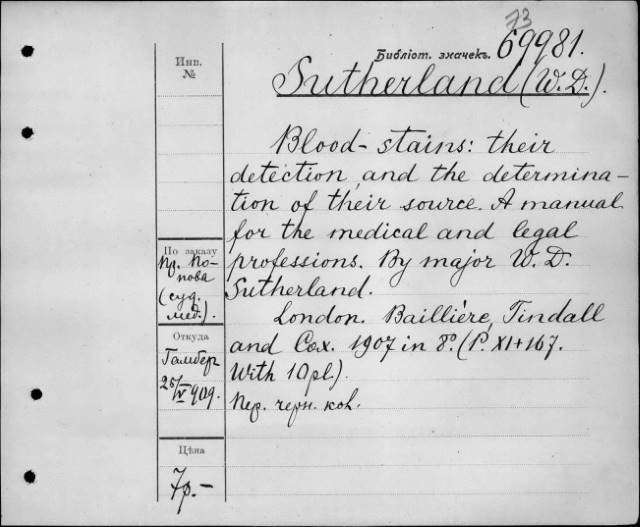 73
Библіот. значекъ. 69981.
Sutherland (W. D.).
Инв.
№
Blood-stains: their
detection and the determina-
tion of their source. A manual
for the medical and legal
professions. By major W. D.
Sutherland.
London. Baillière, Tindall
and Cox. 1907 in 8°. (P. XI+167.
With 10 pl.).
Пер. черн. кол.
По заказу
Пр. По-
пова
(суд.
мед.).
Откуда
Гамбер
25/V 909.
Цѣна
7р.-